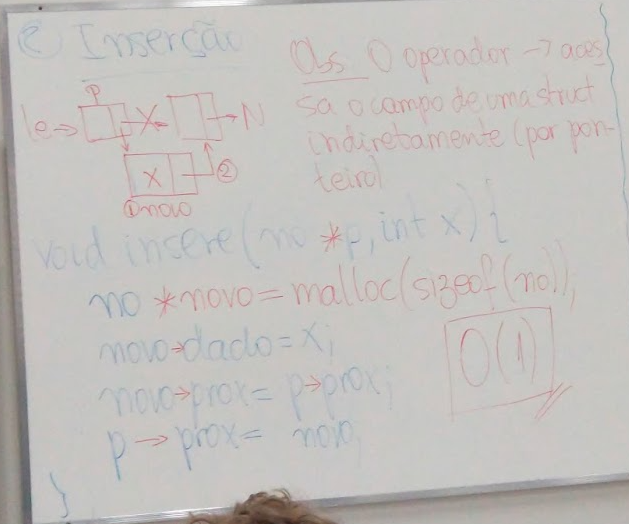 ② Inserção
Obs O operador → aces
sa o campo de uma struct
indiretamente (por pon-
teiro)
p
le → X → N
x ②
① novo
void insere(no *p, int x) {
no *novo = malloc(sizeof(no));
novo→dado = x;
novo→prox = p→prox;
p → prox = novo;
}
O(1)